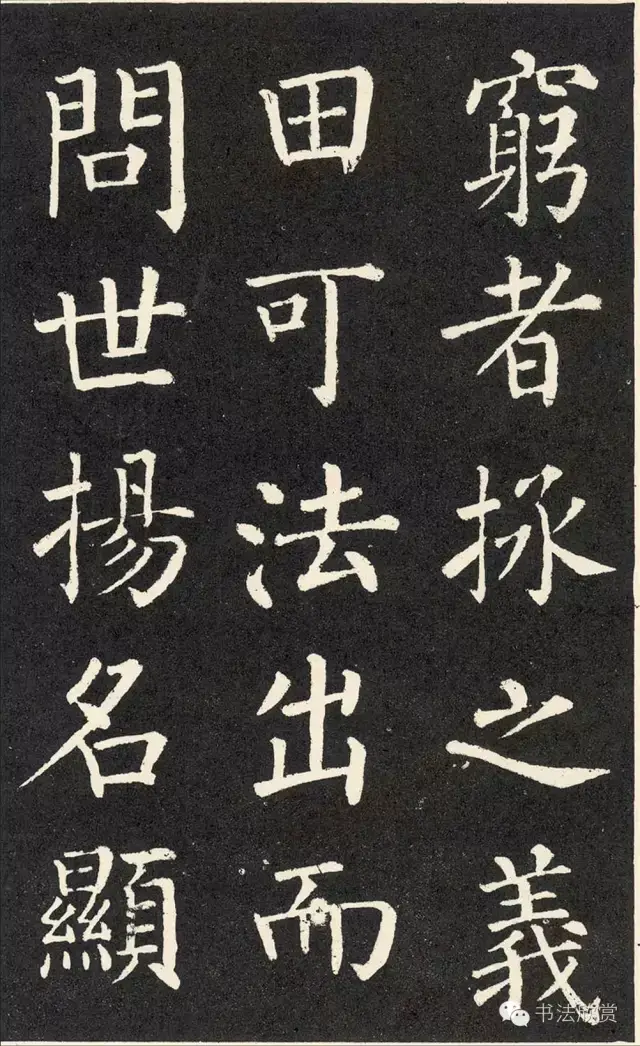 窮者拯之義
田可法出而
問世揚名顯
书法欣赏